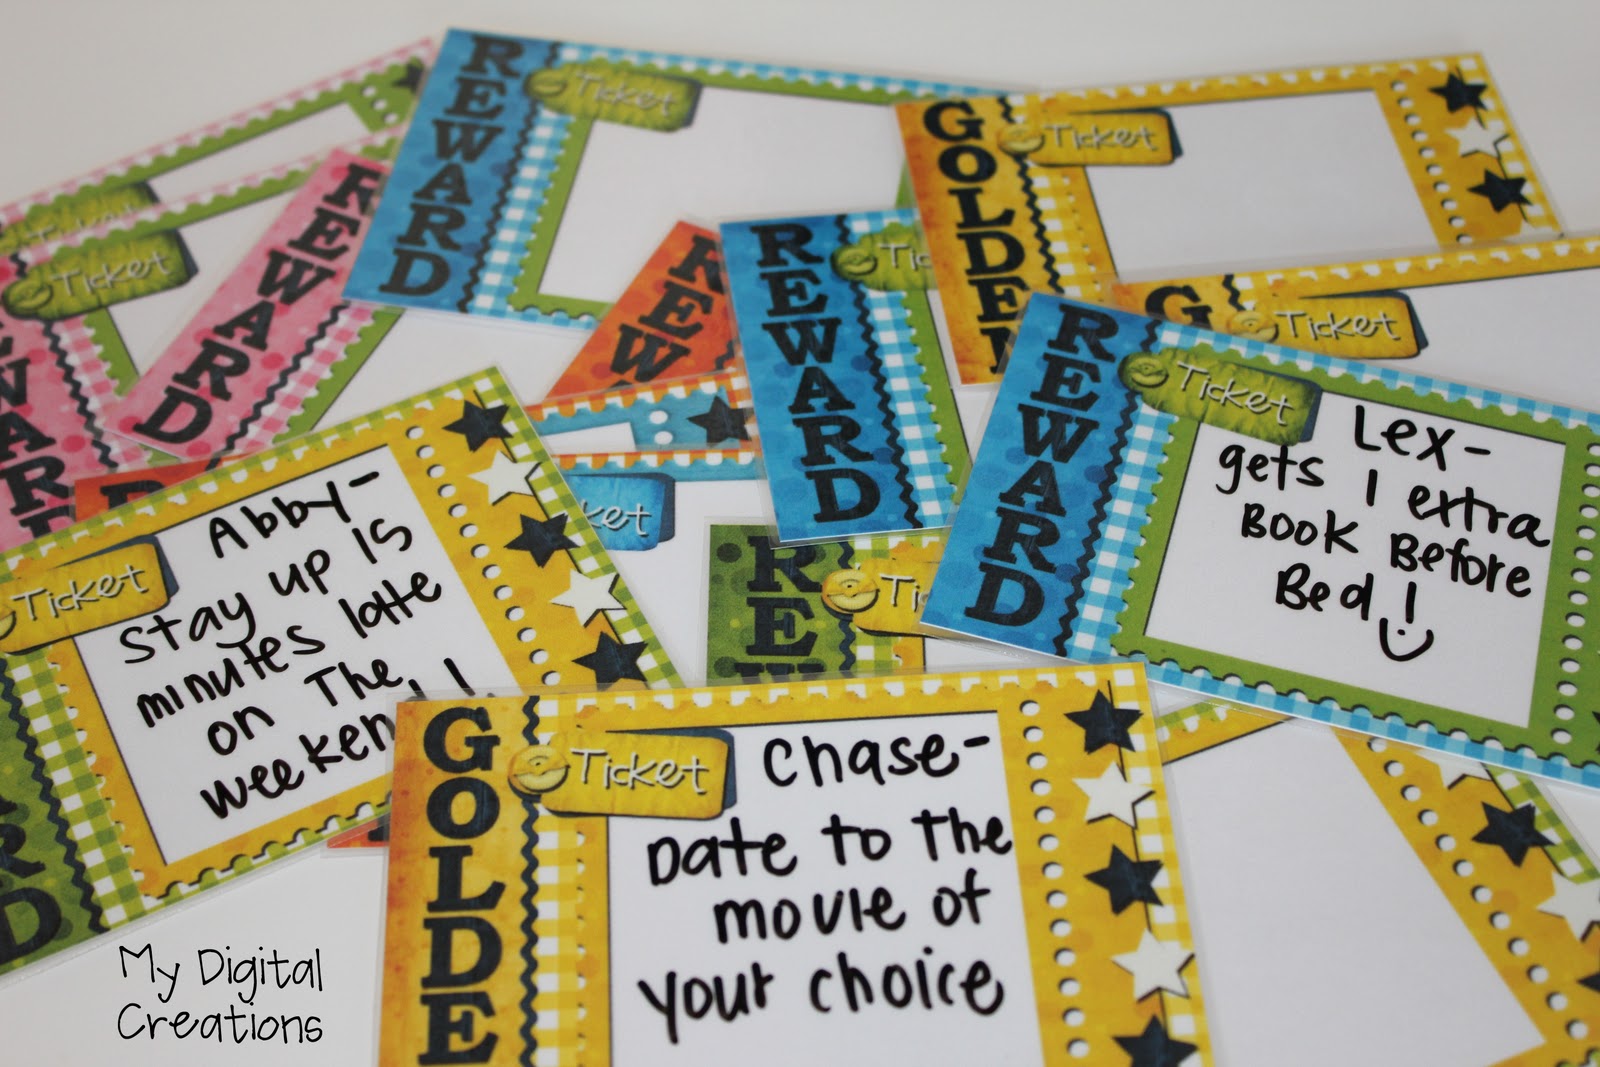 REWARD
Ticket
GOLDEN
Ticket
Ticket
REWARD
Ticket
REWARD
REWARD
Ticket
Ticket
REWARD
Ticket
Lex-
gets 1 extra
Book Before
Bed!
Abby-
Stay up 15
minutes latte
on The
weekend!
Ticket
GOLDE
Ticket
Chase-
Date to the
movie of
your choice
My Digital
Creations